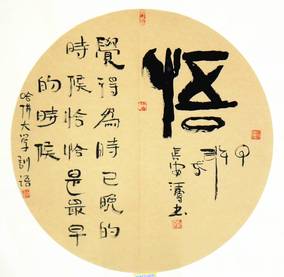 悟
甲
長安濤書
覺得為時已晚的
時候恰恰是最早
的時候
哈佛大学訓語